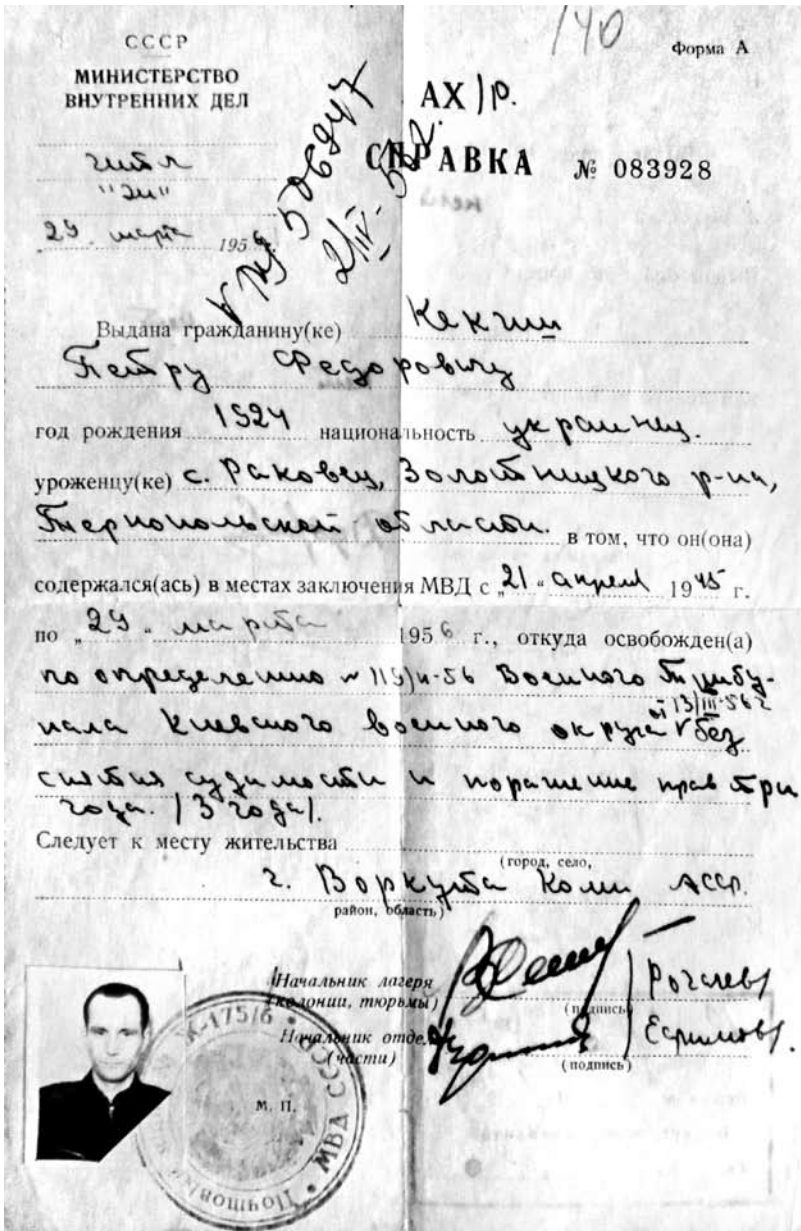 СССР
МИНИСТЕРСТВО
ВНУТРЕННИХ ДЕЛ
140
Форма А
АХ/Р.
СПРАВКА № 083928
"ЗИ"
29 марта 1956
Выдана гражданину(ке) Кекиш
Петру Федоровичу
год рождения 1924 национальность украинец.
уроженцу(ке) с. Раковец, Золотницкого р-на,
Тернопольской области. в том, что он(она)
содержался(ась) в местах заключения МВД с „21“ апреля 1945 г.
по „29“ марта 1956 г., откуда освобожден(а)
по определению № 119/н-56 Военного Трибу-
нала Киевского военного округа от 13/III-56 г без
снятия судимости и поражение прав три
года. /3 года/.
Следует к месту жительства
(город, село,
г. Воркута Коми АССР.
район, область)
Начальник лагеря
(колонии, тюрьмы)
(подпись)
/Рогачев/
Начальник отдела
(части)
(подпись)
Ефимов/.
М. П.
К-175/6
МВД СССР